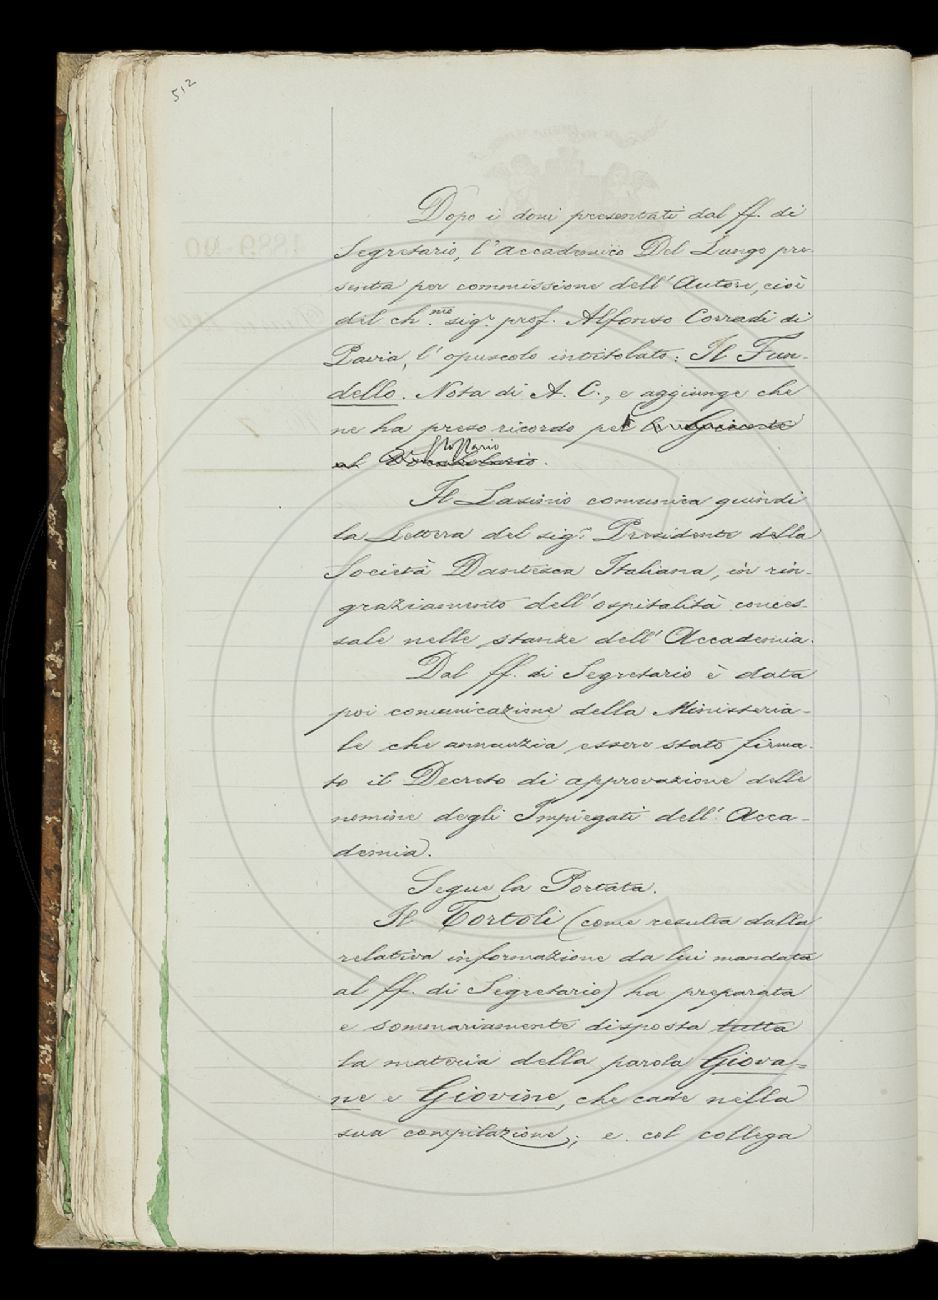 512
Dopo i doni presentati dal ff. di
Segretario, l'Accademico Del Lungo pre-
senta per commissione dell'Autore, cioè
del ch.mo sig.r prof. Alfonso Corradi di
Pavia, l'opuscolo intitolato: Il Fun-
dello. Nota di A. C., e aggiunge che
ne ha preso ricordo pel
Glossario
al Vocabolario.
Il Lasinio comunica quindi
la Lettera del sig.r Presidente della
Società Dantesca Italiana, in rin-
graziamento dell'ospitalità conces-
sale nelle stanze dell'Accademia.
Dal ff. di Segretario è data
poi comunicazione della Ministeria-
le che annunzia essere stato firma-
to il Decreto di approvazione delle
nomine degli Impiegati dell'Acca-
demia.
Segue la Portata.
Il Tortoli (come resulta dalla
relativa informazione da lui mandata
al ff. di Segretario) ha preparata
e sommariamente disposta tutta
la materia della parola Giova-
ne e Giovine, che cade nella
sua compilazione; e col collega